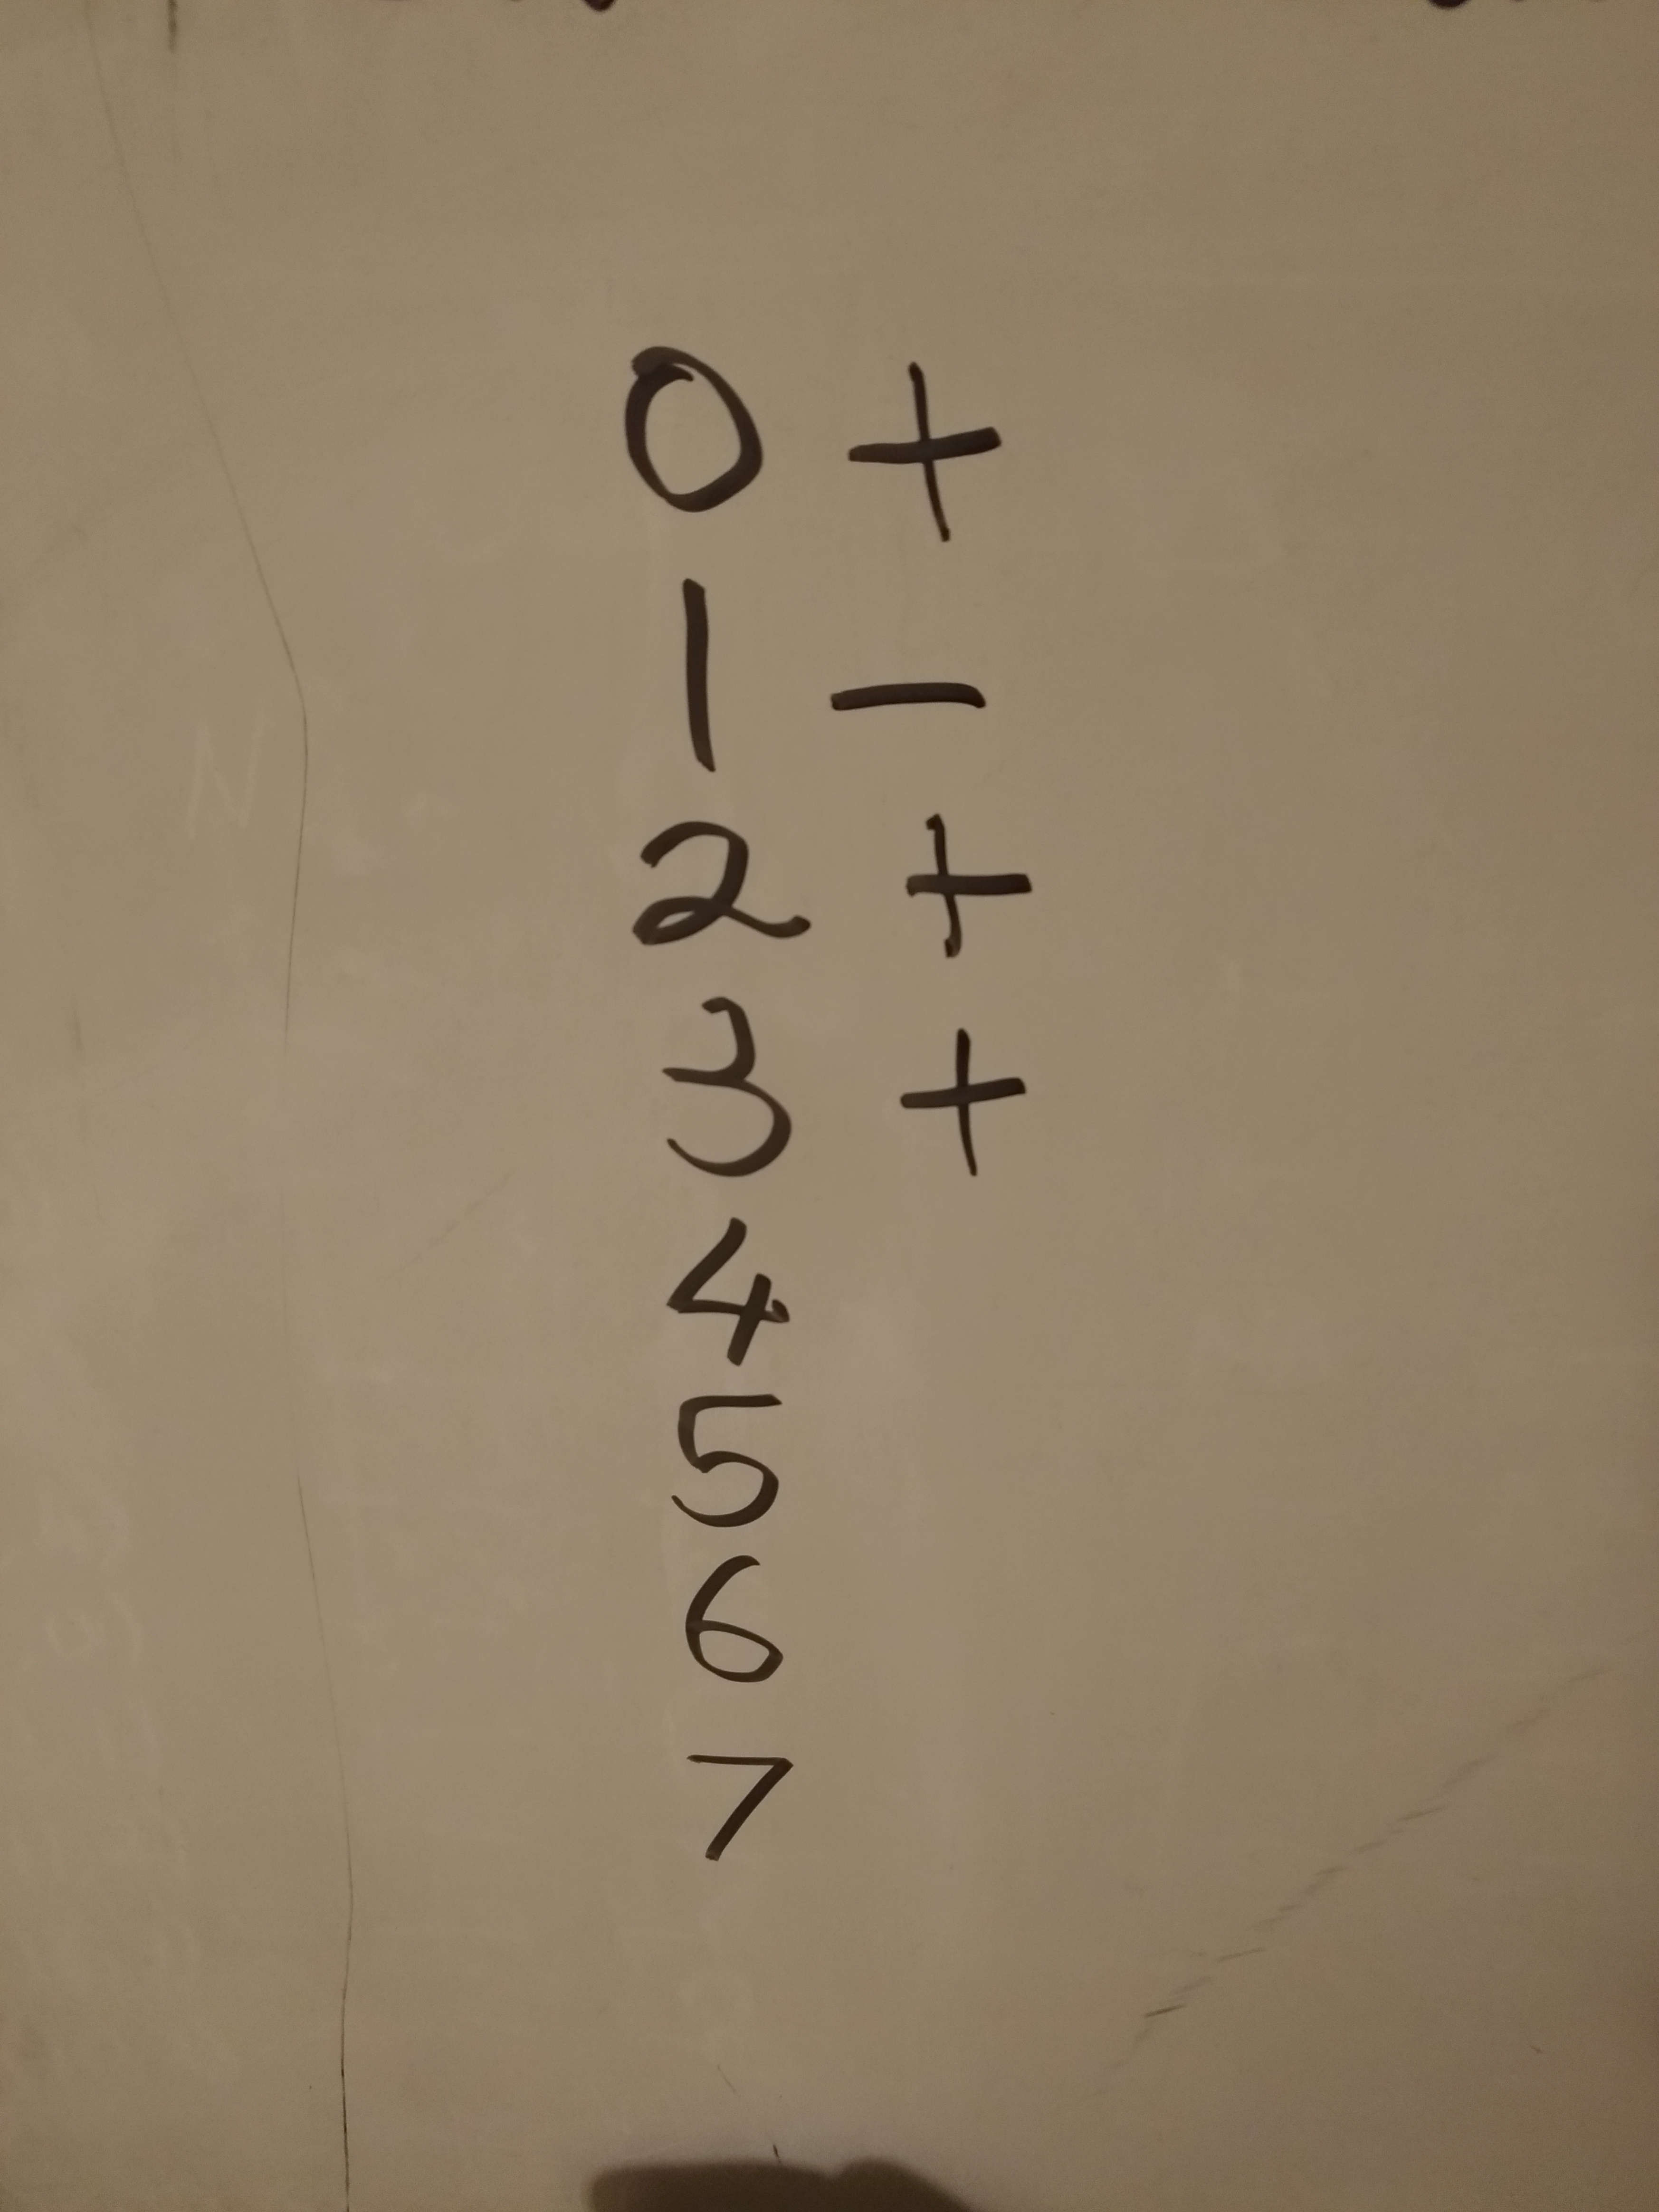 0 +
1 -
2 +
3 +
4
5
6
7